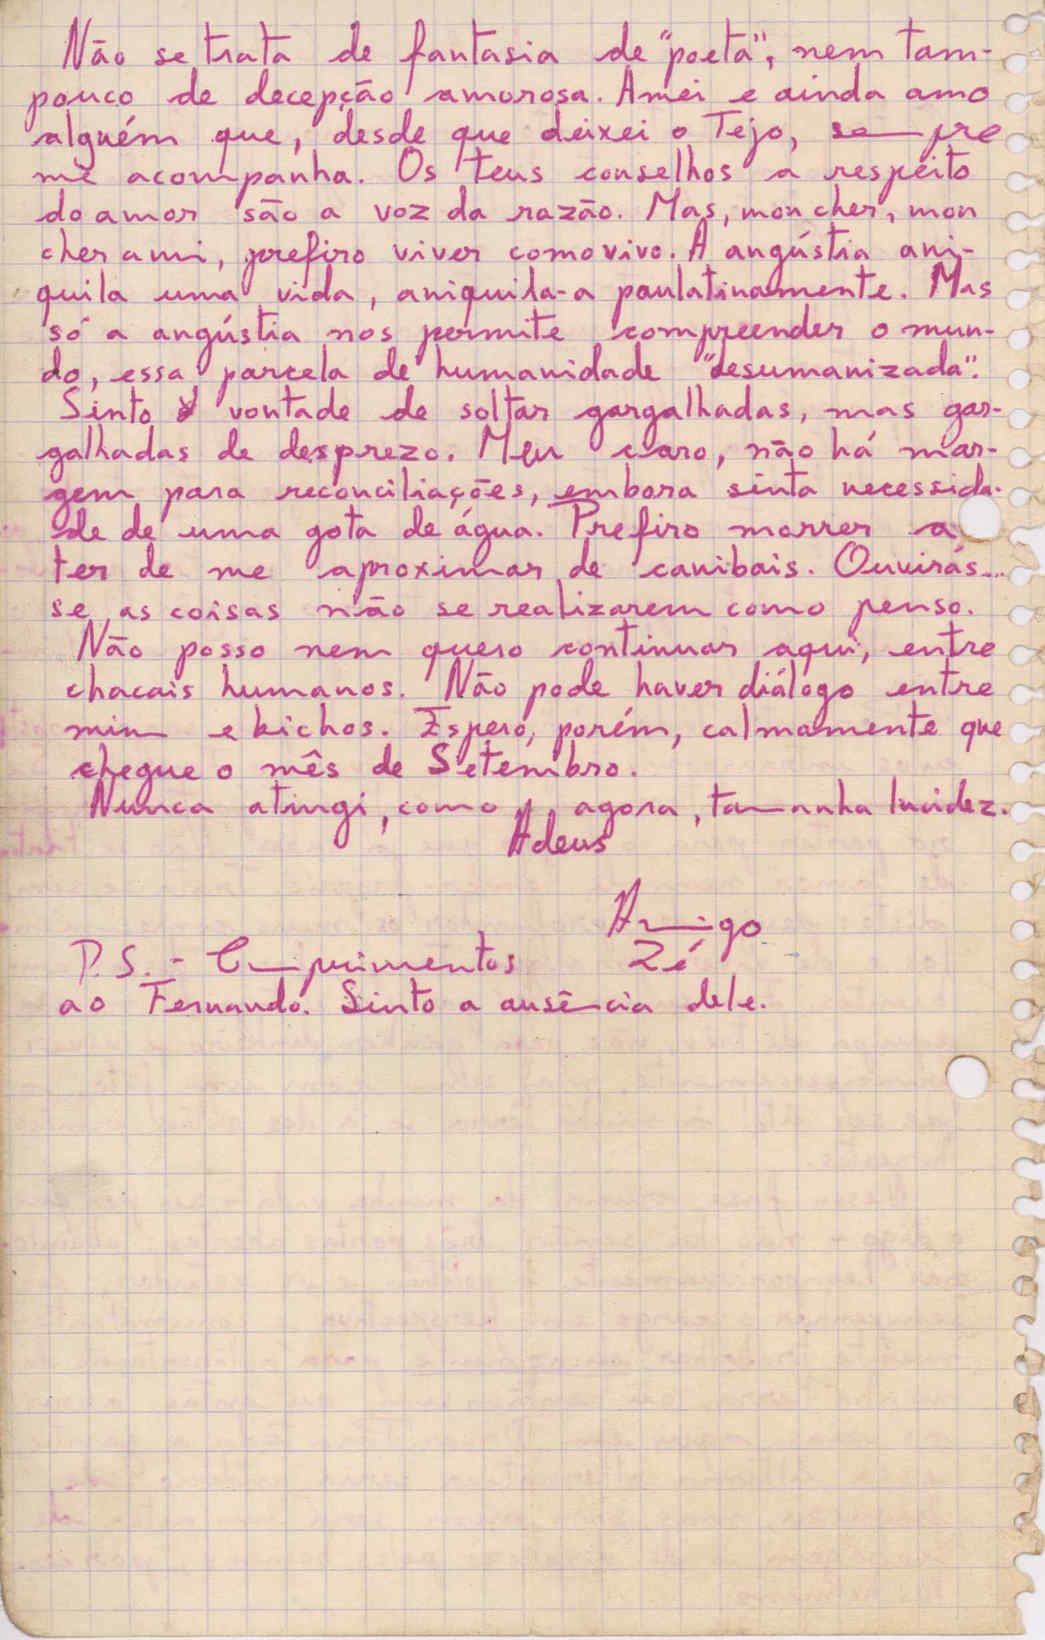 Não se trata de fantasia de "poeta", nem tam-
pouco de decepção amorosa. Amei e ainda amo
alguém que, desde que deixei o Tejo, sempre
me acompanha. Os teus conselhos a respeito
do amor são a voz da razão. Mas, mon cher, mon
cher ami, prefiro viver como vivo. A angústia ani-
quila uma vida, aniquila-a paulatinamente. Mas
só a angústia nos permite compreender o mun-
do, essa parcela de humanidade "desumanizada".
Sinto vontade de soltar gargalhadas, mas gar-
galhadas de desprezo. Meu caro, não há mar-
gem para reconciliações, embora sinta necessida-
de de uma gota de água. Prefiro morrer a
ter de me aproximar de canibais. Ouvirás...
se as coisas não se realizarem como penso.
Não posso nem quero continuar aqui, entre
chacais humanos. Não pode haver diálogo entre
mim e bichos. Espero, porém, calmamente que
chegue o mês de Setembro.
Nunca atingi, como agora, tamanha lucidez.
Adeus
Amigo
Zé
P.S. - Cumprimentos
ao Fernando. Sinto a ausência dele.